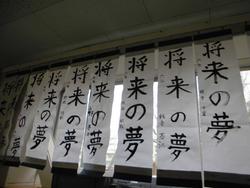 将来の夢
将来の夢
将来の夢
将来の夢
将来の夢
将来の夢
将来の夢
将来の夢